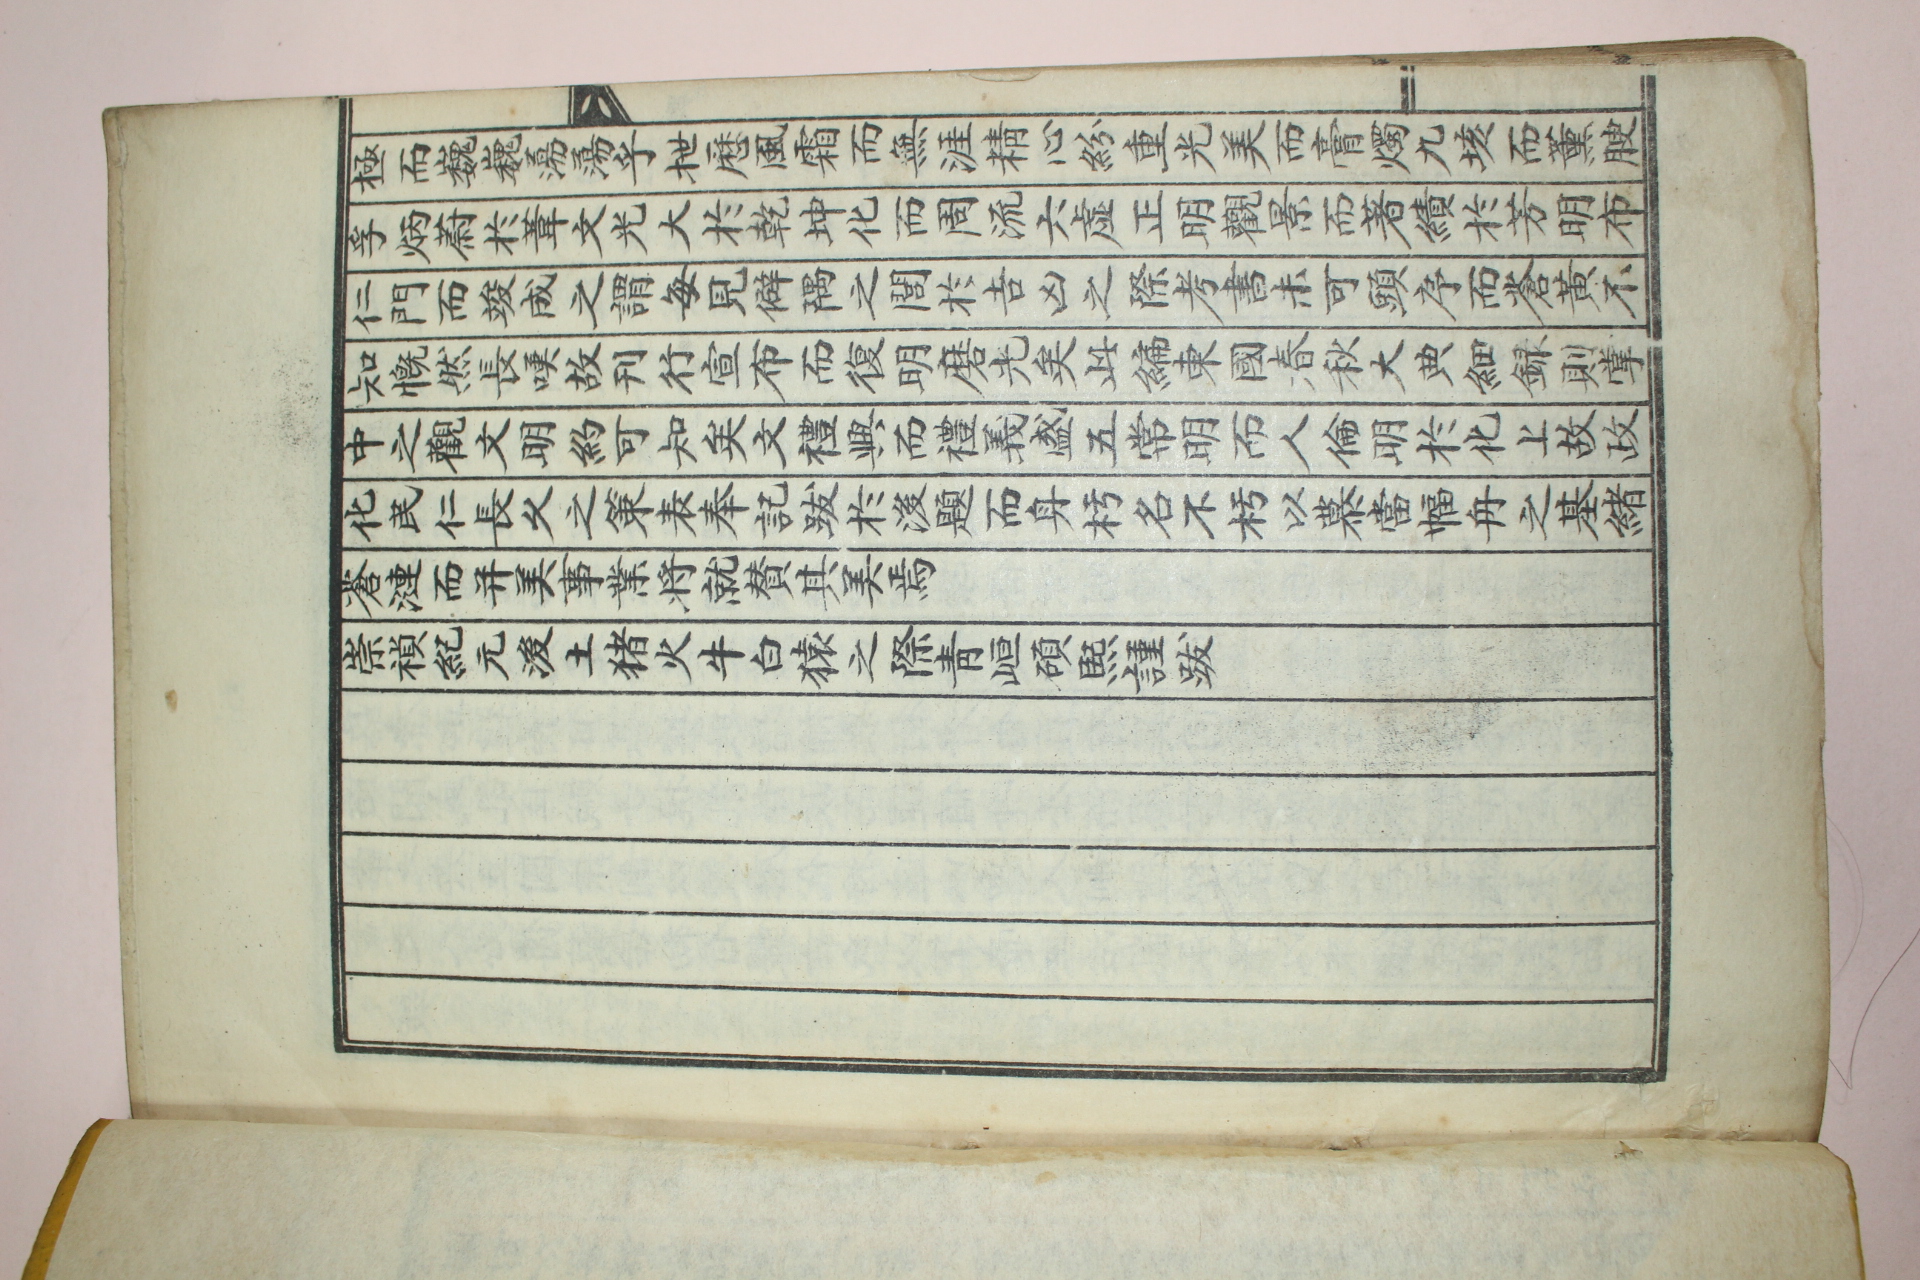 極而巍巍湯湯乎拙歷風霜而無涯精心紛重光美而膏燭九垓而薰腴
孚炳蔚於葦文光大於乾坤化而周流六虛正明觀景而著績於芳明布
仁門而竣成之謂每見僻隅之閭於吉凶之際考書未可頭序而蒼黃不
知慨然長嘆故刊行宣布而復明磨光矣此編東國春秋大典細錄則掌
中之觀文明約可知矣文禮興而禮義盛五常明而人倫明於化上故政
化民仁長久之策表奉記跋於後題而身朽名不朽以慕當幅冊之基緖
蒼漣而并美事業將就贊其美焉
崇禎紀元後土猪火牛白猿之際靑峘碩熙謹跋